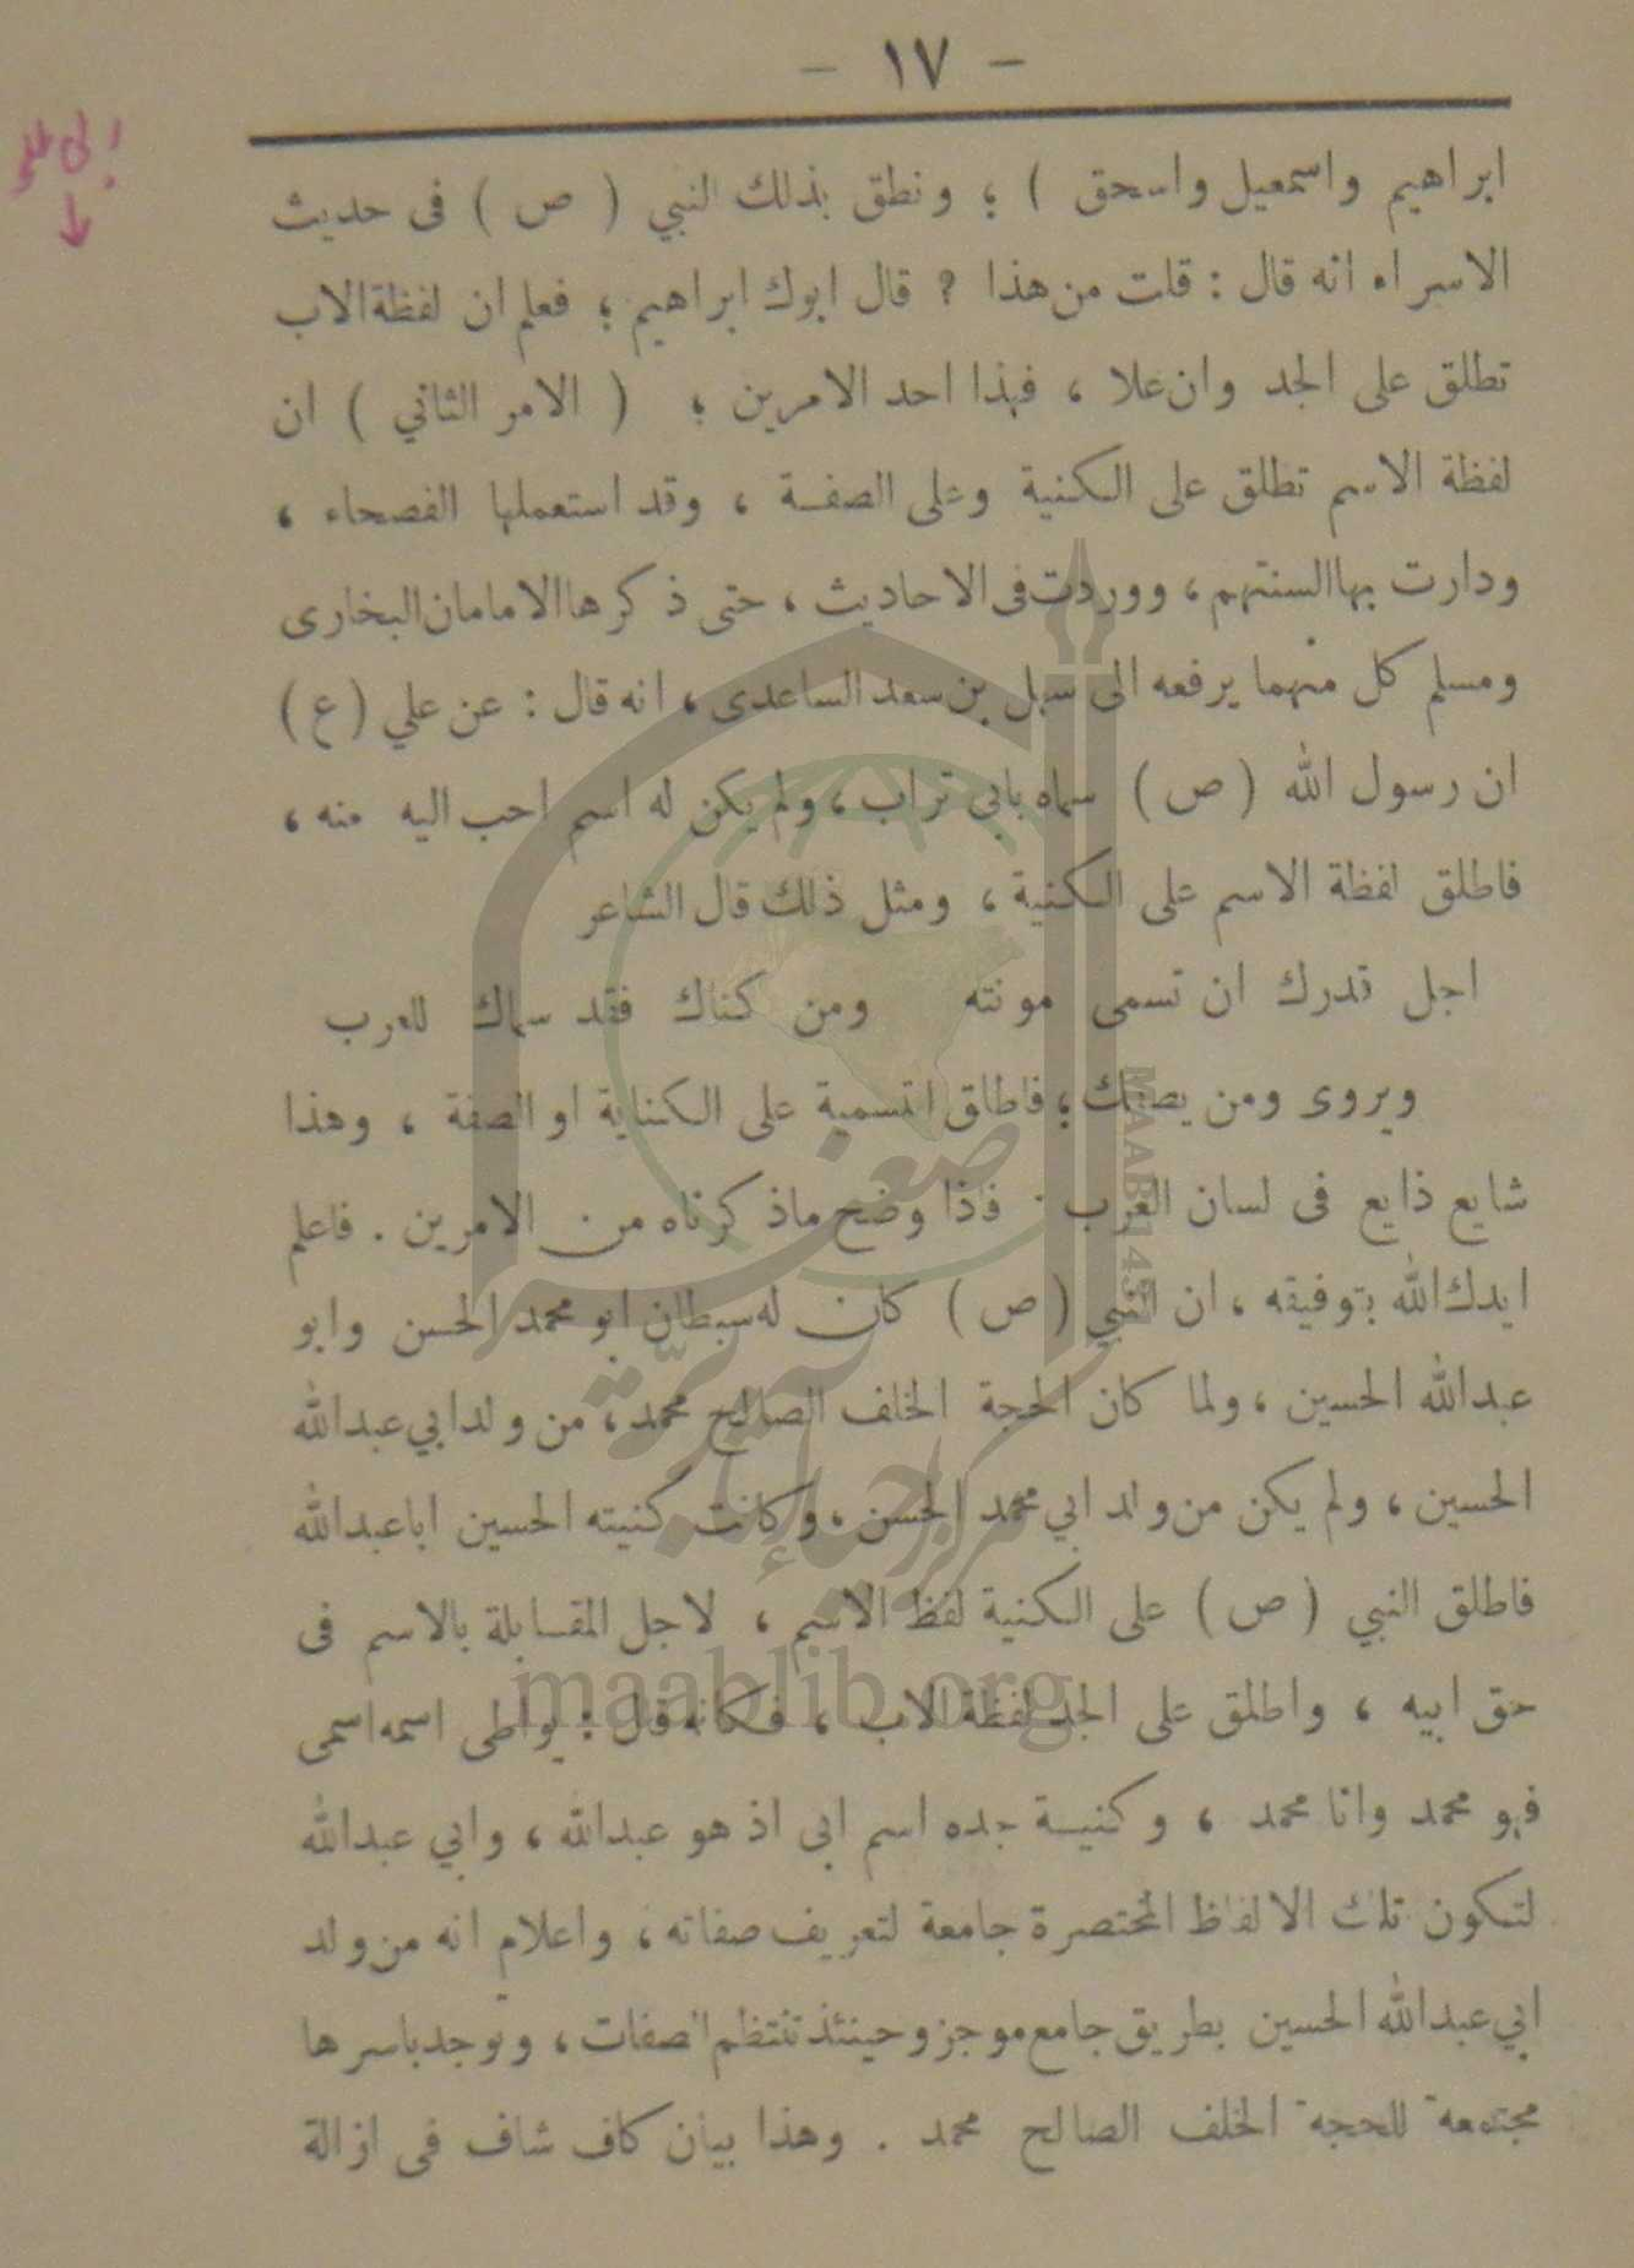 - ١٧ -
ابراهيم واسمعيل واسحق ) ؛ ونطق بذلك النبي ( ص ) فى حديث
الاسراء انه قال : قلت من هذا ? قال ابوك ابراهيم ؛ فعلم ان لفظة الاب
تطلق على الجد وان علا ، فهذا احد الامرين ؛ ( الامر الثاني ) ان
لفظة الاسم تطلق على الكنية وعلى الصفة ، وقد استعملها الفصحاء ،
ودارت بها السنتهم ، ووردت فى الاحاديث ، حتى ذكرها الامامان البخارى
ومسلم كل منهما يرفعه الى سهل بن سعد الساعدى ، انه قال : عن علي ( ع )
ان رسول الله ( ص ) سماه بابى تراب ، ولم يكن له اسم احب اليه منه ،
فاطلق لفظة الاسم على الكنية ، ومثل ذلك قال الشاعر
اجل قدرك ان تسمى مونته ومن كناك فقد سماك للعرب
ويروى ومن يصفك ؛ فاطلق التسمية على الكناية او الصفة ، وهذا
شايع ذايع فى لسان العرب . فاذا وضح ماذكرناه من الامرين . فاعلم
ايدك الله بتوفيقه ، ان النبي ( ص ) كان له سبطان ابو محمد الحسن وابو
عبدالله الحسين ، ولما كان الحجة الخلف الصالح محمد ، من ولد ابي عبدالله
الحسين ، ولم يكن من ولد ابي محمد الحسن ، وكانت كنيته الحسين اباعبدالله
فاطلق النبي ( ص ) على الكنية لفظ الاسم ، لاجل المقابلة بالاسم فى
حق ابيه ، واطلق على الجد لفظة الاب ، فكانه قال : يواطى اسمه اسمى
فهو محمد وانا محمد ، وكنية جده اسم ابى اذ هو عبدالله ، وابي عبدالله
لتكون تلك الالفاظ المختصرة جامعة لتعريف صفاته ، واعلام انه من ولد
ابي عبدالله الحسين بطريق جامع موجز وحينئذ تنتظم الصفات ، وتوجد باسرها
مجتمعة للحجة الخلف الصالح محمد . وهذا بيان كاف شاف فى ازالة
maablib.org